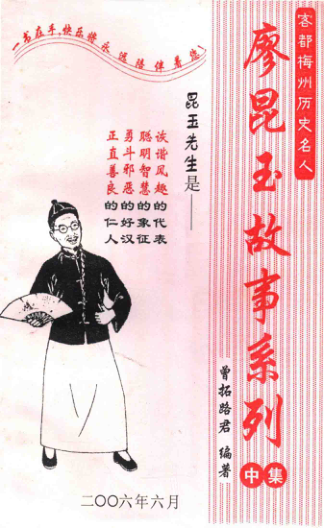 客都梅州历史名人
廖昆玉故事系列
中集
曾拓路君 编著
一书在手,快乐
远随伴着您!
昆玉先生是——
诙谐风趣的代表
聪明智慧的象征
勇斗邪恶的好汉
正直善良的仁人
二〇〇六年六月